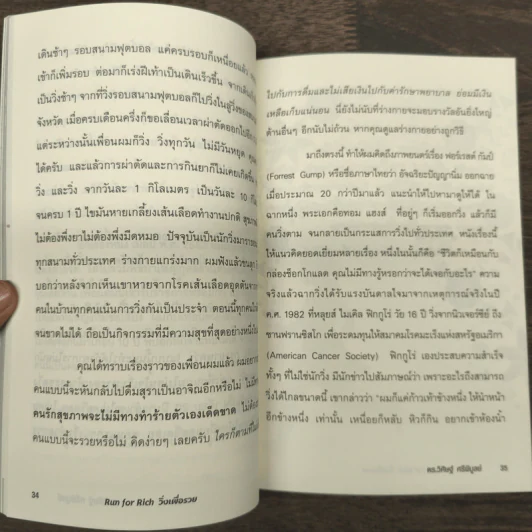 เดินช้าๆ รอบสนามฟุตบอล แค่ครบรอบก็เหนื่อยแล้ว
เข้าก็เพิ่มรอบ ต่อมาก็เร่งฝีเท้าเป็นเดินเร็วขึ้น จากเดิน
เป็นวิ่งช้าๆ จากที่วิ่งรอบสนามฟุตบอลก็ไปวิ่งใน
จังหวัด เมื่อครบเดือนครึ่งก็ขอเลื่อนเวลาผ่าตัดออกไป
แต่ระหว่างนั้นเพื่อนผมก็วิ่ง วิ่งทุกวัน ไม่มีวันหยุด
ได้ครับ และแล้วการผ่าตัดและการกินยาก็ไม่เคยเกิดขึ้น
วิ่ง และวิ่ง จากวันละ 1 กิโลเมตร เป็นวันละ 10
จนครบ 1 ปี ไขมันหายเกลี้ยงเส้นเลือดทำงานปกติ
ไม่ต้องพึ่งยาไม่ต้องพึ่งมีดหมอ ปัจจุบันเป็นนักวิ่งมาราธอน
ทุกสนามทั่วประเทศ ร่างกายแกร่งมาก ผมฟังแล้วขนลุก
บอกว่าหลังจากเห็นเขาหายจากโรคเส้นเลือดอุดตัน
คนในบ้านทุกคนเน้นการวิ่งกันเป็นประจำ ตอนนี้ทุกคน
จนขาดไม่ได้ ถือเป็นกิจกรรมที่มีความสุขที่สุดอย่างหนึ่ง
คุณได้ทราบเรื่องราวของเพื่อนผมแล้ว
คนแบบนี้จะหันกลับไปดื่มสุราเป็นอาจิณอีกหรือไม่
คนรักสุขภาพจะไม่มีทางทำร้ายตัวเองเด็ดขาด
คนแบบนี้จะรวยหรือไม่ คิดง่ายๆ เลยครับ
34 Run for Rich วิ่งเพื่อรวย
ไปกับการดื่มและไม่เสียเงินไปกับค่ารักษาพยาบาล ย่อมมีเงิน
เหลือเก็บแน่นอน นี่ยังไม่นับที่ร่างกายจะมอบรางวัลอันยิ่งใหญ่
ด้านอื่นๆ อีกนับไม่ถ้วน หากคุณดูแลร่างกายอย่างถูกวิธี
มาถึงตรงนี้ ทำให้ผมคิดถึงภาพยนตร์เรื่อง ฟอร์เรสต์ กัมป์
(Forrest Gump) หรือชื่อภาษาไทยว่า อัจฉริยะปัญญานิ่ม ออกฉาย
เมื่อประมาณ 20 กว่าปีมาแล้ว แนะนำให้ไปหามาดูให้ได้ ใน
ฉากหนึ่ง พระเอกคือทอม แฮงส์ ที่อยู่ๆ ก็เริ่มออกวิ่ง แล้วก็มี
คนวิ่งตาม จนกลายเป็นกระแสการวิ่งไปทั่วประเทศ หนังเรื่องนี้
ให้แนวคิดยอดเยี่ยมหลายเรื่อง หนึ่งในนั้นก็คือ "ชีวิตก็เหมือนกับ
กล่องช็อกโกแลต คุณไม่มีทางรู้หรอกว่าจะได้เจอกับอะไร" ความ
จริงแล้วฉากวิ่งได้รับแรงบันดาลใจมาจากเหตุการณ์จริงในปี
ค.ศ. 1982 ที่หลุยส์ ไมเคิล ฟิกูโร่ วัย 16 ปี วิ่งจากนิวเจอร์ซีย์ ถึง
ซานฟรานซิสโก เพื่อระดมทุนให้สมาคมโรคมะเร็งแห่งสหรัฐอเมริกา
(American Cancer Society) ฟิกูโร่ เองประสบความสำเร็จ
ทั้งๆ ที่ไม่ใช่นักวิ่ง มีนักข่าวไปสัมภาษณ์ว่า เพราะอะไรถึงสามารถ
วิ่งได้ไกลขนาดนี้ เขากล่าวว่า "ผมก็แค่ก้าวเท้าข้างหนึ่ง ให้นำหน้า
อีกข้างหนึ่ง เท่านั้น เหนื่อยก็หลับ หิวก็กิน อยากเข้าห้องน้ำ
ดร.วิศิษฐ์ ศรีพิบูลย์ 35